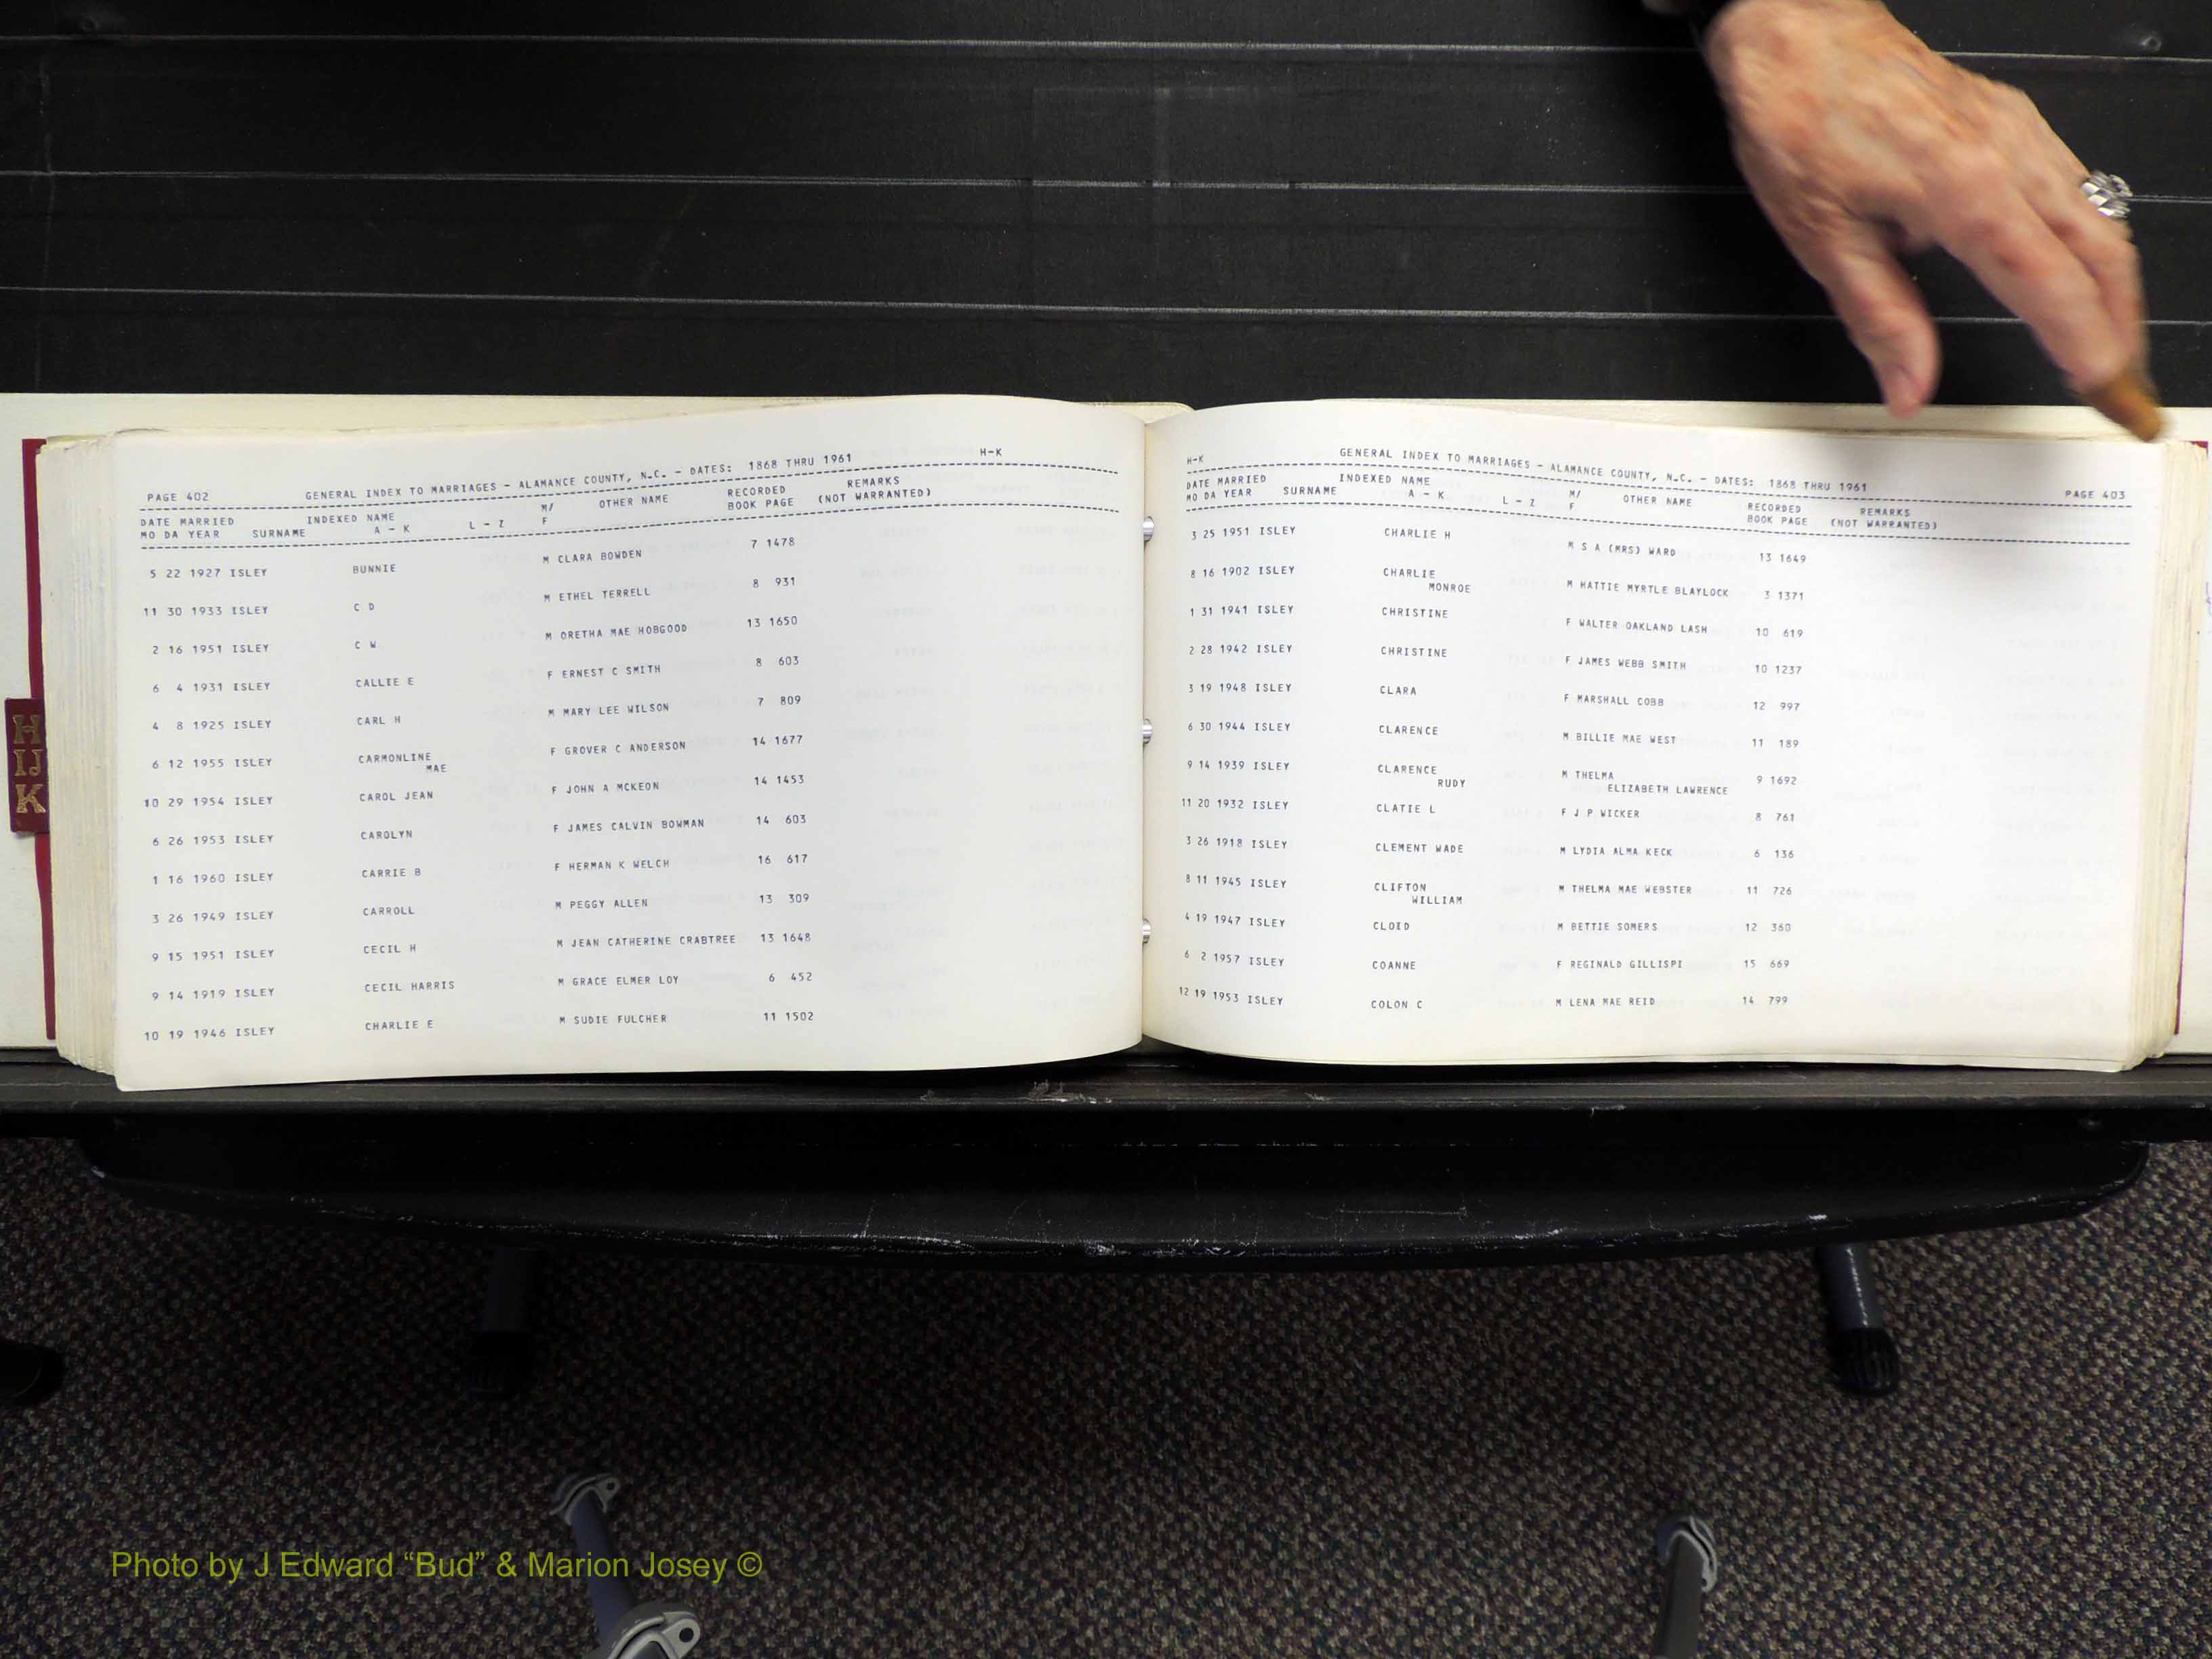 H
IJ
K
PAGE 402 GENERAL INDEX TO MARRIAGES - ALAMANCE COUNTY, N.C. - DATES: 1868 THRU 1961 H-K
DATE MARRIED INDEXED NAME M/ OTHER NAME RECORDED REMARKS
MO DA YEAR SURNAME A - K L - Z F BOOK PAGE (NOT WARRANTED)
5 22 1927 ISLEY BUNNIE M CLARA BOWDEN 7 1478
11 30 1933 ISLEY C D M ETHEL TERRELL 8 931
2 16 1951 ISLEY C W M ORETHA MAE HOBGOOD 13 1650
6 4 1931 ISLEY CALLIE E F ERNEST C SMITH 8 603
4 8 1925 ISLEY CARL H M MARY LEE WILSON 7 809
6 12 1955 ISLEY CARMONLINE F GROVER C ANDERSON 14 1677
MAE
10 29 1954 ISLEY CAROL JEAN F JOHN A MCKEON 14 1453
6 26 1953 ISLEY CAROLYN F JAMES CALVIN BOWMAN 14 603
1 16 1960 ISLEY CARRIE B F HERMAN K WELCH 16 617
3 26 1949 ISLEY CARROLL M PEGGY ALLEN 13 309
9 15 1951 ISLEY CECIL H M JEAN CATHERINE CRABTREE 13 1648
9 14 1919 ISLEY CECIL HARRIS M GRACE ELMER LOY 6 452
10 19 1946 ISLEY CHARLIE E M SUDIE FULCHER 11 1502
H-K GENERAL INDEX TO MARRIAGES - ALAMANCE COUNTY, N.C. - DATES: 1868 THRU 1961 PAGE 403
DATE MARRIED INDEXED NAME M/ OTHER NAME RECORDED REMARKS
MO DA YEAR SURNAME A - K L - Z F BOOK PAGE (NOT WARRANTED)
3 25 1951 ISLEY CHARLIE H M S A (MRS) WARD 13 1649
8 16 1902 ISLEY CHARLIE M HATTIE MYRTLE BLAYLOCK 3 1371
MONROE
1 31 1941 ISLEY CHRISTINE F WALTER OAKLAND LASH 10 619
2 28 1942 ISLEY CHRISTINE F JAMES WEBB SMITH 10 1237
3 19 1948 ISLEY CLARA F MARSHALL COBB 12 997
6 30 1944 ISLEY CLARENCE M BILLIE MAE WEST 11 189
9 14 1939 ISLEY CLARENCE M THELMA 9 1692
RUDY ELIZABETH LAWRENCE
11 20 1932 ISLEY CLATIE L F J P WICKER 8 761
3 26 1918 ISLEY CLEMENT WADE M LYDIA ALMA KECK 6 136
8 11 1945 ISLEY CLIFTON M THELMA MAE WEBSTER 11 726
WILLIAM
4 19 1947 ISLEY CLOID M BETTIE SOMERS 12 360
6 2 1957 ISLEY COANNE F REGINALD GILLISPI 15 669
12 19 1953 ISLEY COLON C M LENA MAE REID 14 799
Photo by J Edward “Bud” & Marion Josey ©